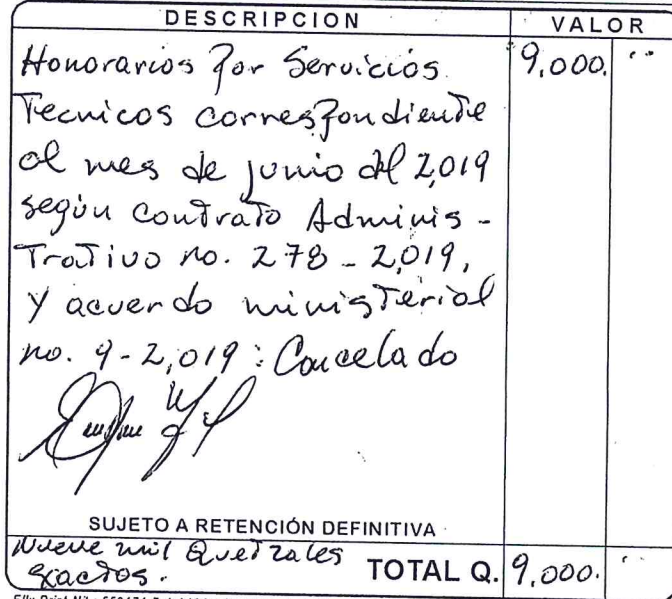 DESCRIPCION VALOR
Honorarios Por Servicios 9,000.
Tecnicos correspondiente
al mes de junio del 2,019
según contrato Adminis-
Trativo no. 278-2,019,
y acuerdo ministerial
no. 9-2,019: Cancelado
SUJETO A RETENCIÓN DEFINITIVA
Nueve mil Quetzales
exactos. TOTAL Q. 9,000.